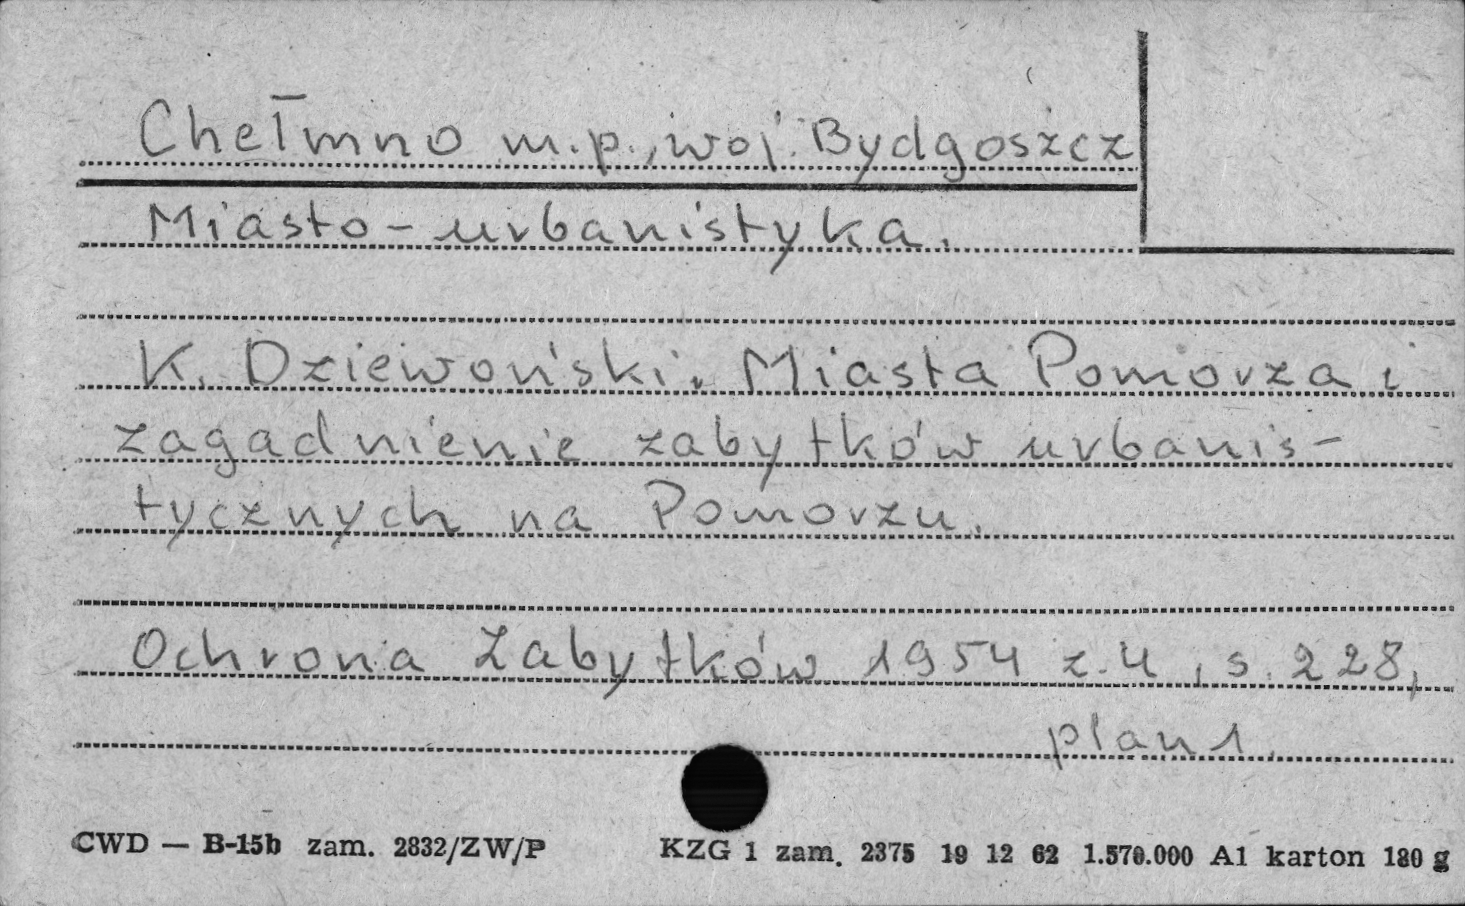 Chełmno m.p., woj. Bydgoszcz
Miasto - urbanistyka.
K. Dziewoński. Miasta Pomorza i
zagadnienie zabytków urbanis-
tycznych na Pomorzu.
Ochrona Zabytków 1954 z. 4, s. 228,
plan 1.
CWD — B-15b zam. 2832/ZW/P KZG 1 zam. 2375 19 12 62 1.570.000 A1 karton 180 g